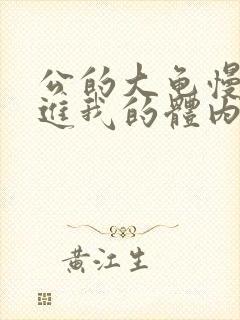 公的大龟慢
進我的體内
黄江生